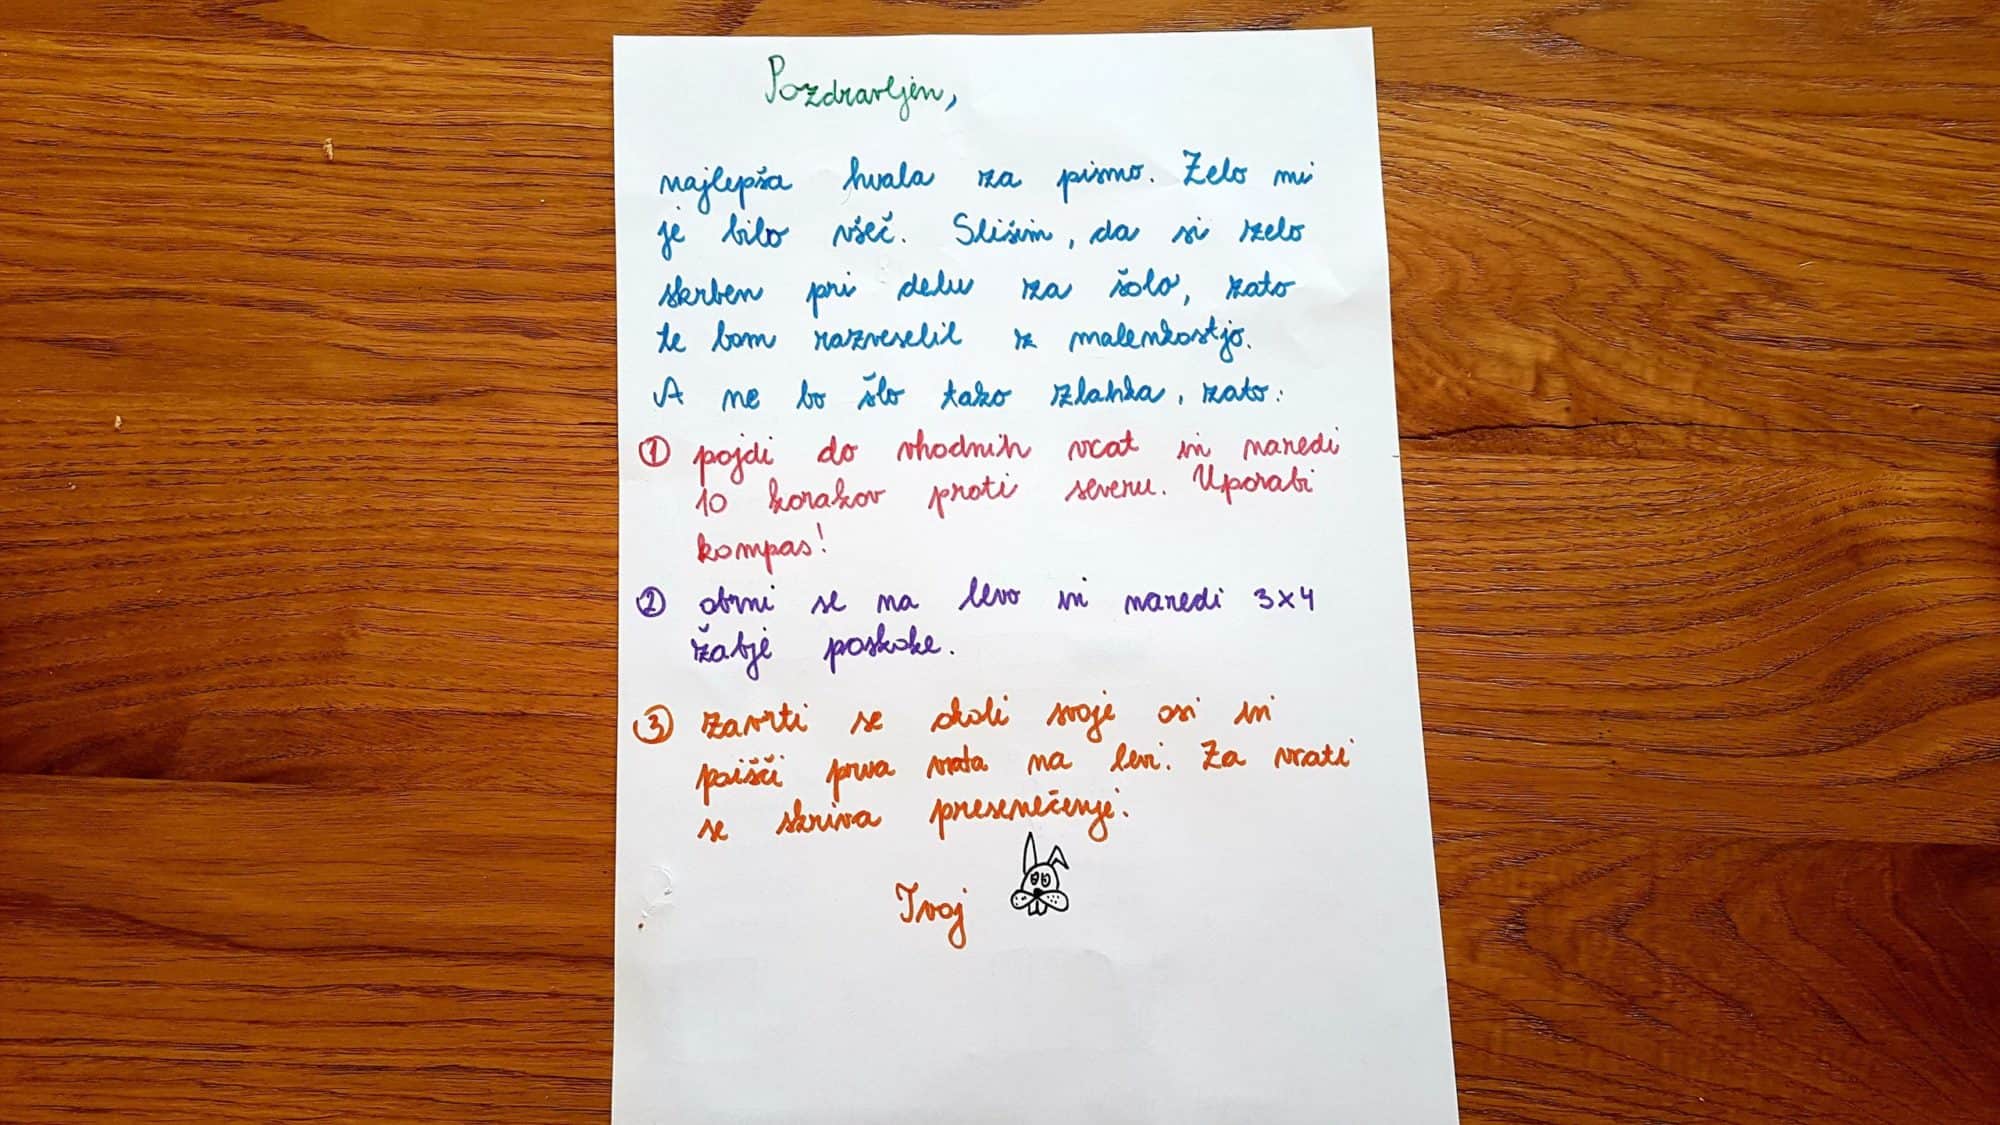 Pozdravljen,
najlepša hvala za pismo. Zelo mi
je bilo všeč. Slišim, da si zelo
skrben pri delu za šolo, zato
te bom razveselil z malenkostjo.
A ne bo šlo tako zlahka, zato:
1 pojdi do vhodnih vrat in naredi
10 korakov proti severu. Uporabi
kompas!
2 obrni se na levo in naredi 3x4
žabje poskoke.
3 zavrti se okoli svoje osi in
poišči prva vrata na levi. Za vrati
se skriva presenečenje.
Tvoj